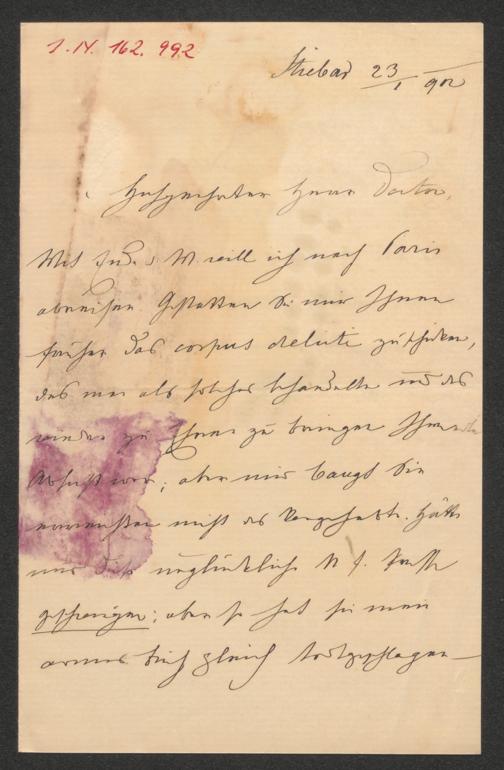 I.N. 162.992
Stiebar 23/1 902
Hochgeehrter Herr Doctor,
Mit End. d. M. will ich nach Paris
abreisen. Gestatten Sie mir Ihnen
früher das corpus delicti zu schicken,
das man als solches behandelte und das
wieder zu Ehren zu bringen Ihre
Absicht war; aber mir bangt Sie
vermissten nicht das
mir dieß unglückliche N. f. Presse
geschwiegen: aber so hat sie mein
armes Buch gleich todtgeschlagen —